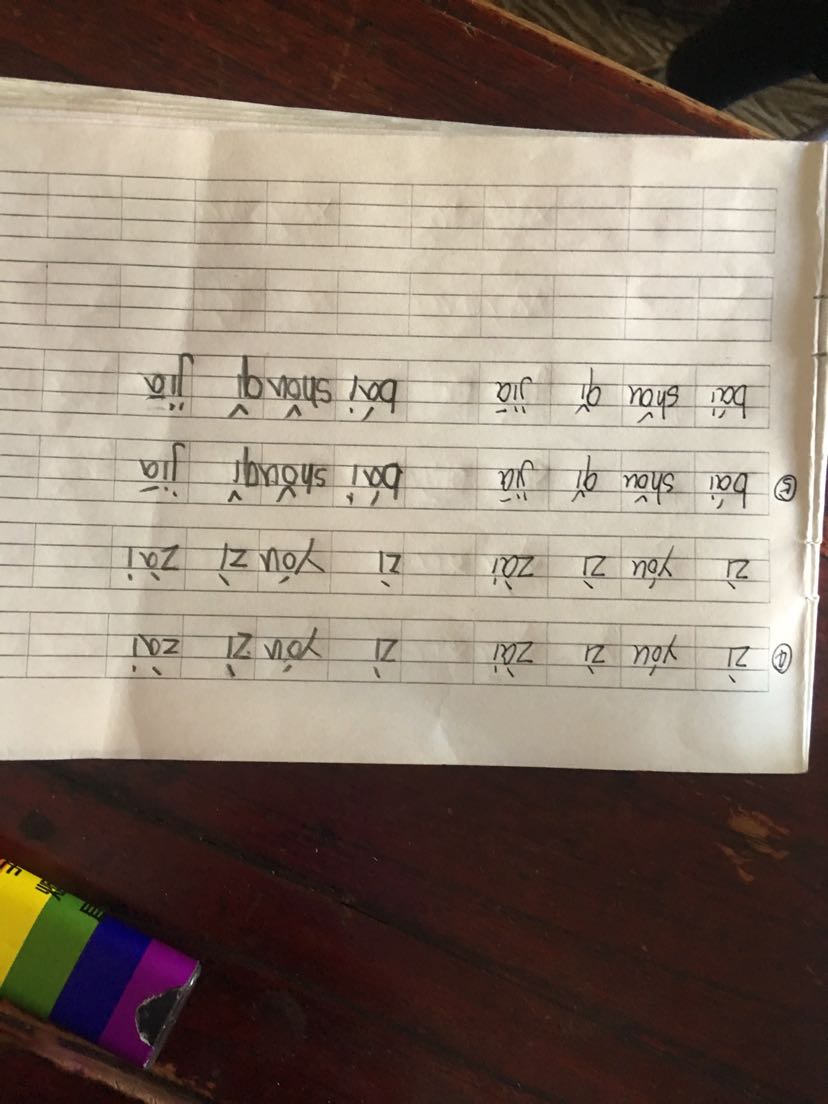 ④ zì yóu zì zài zì yóu zì zài
zì yóu zì zài zì yóu zì zài
⑤ bái shǒu qǐ jiā bái shǒu qǐ jiā
bái shǒu qǐ jiā bái shǒu qǐ jiā